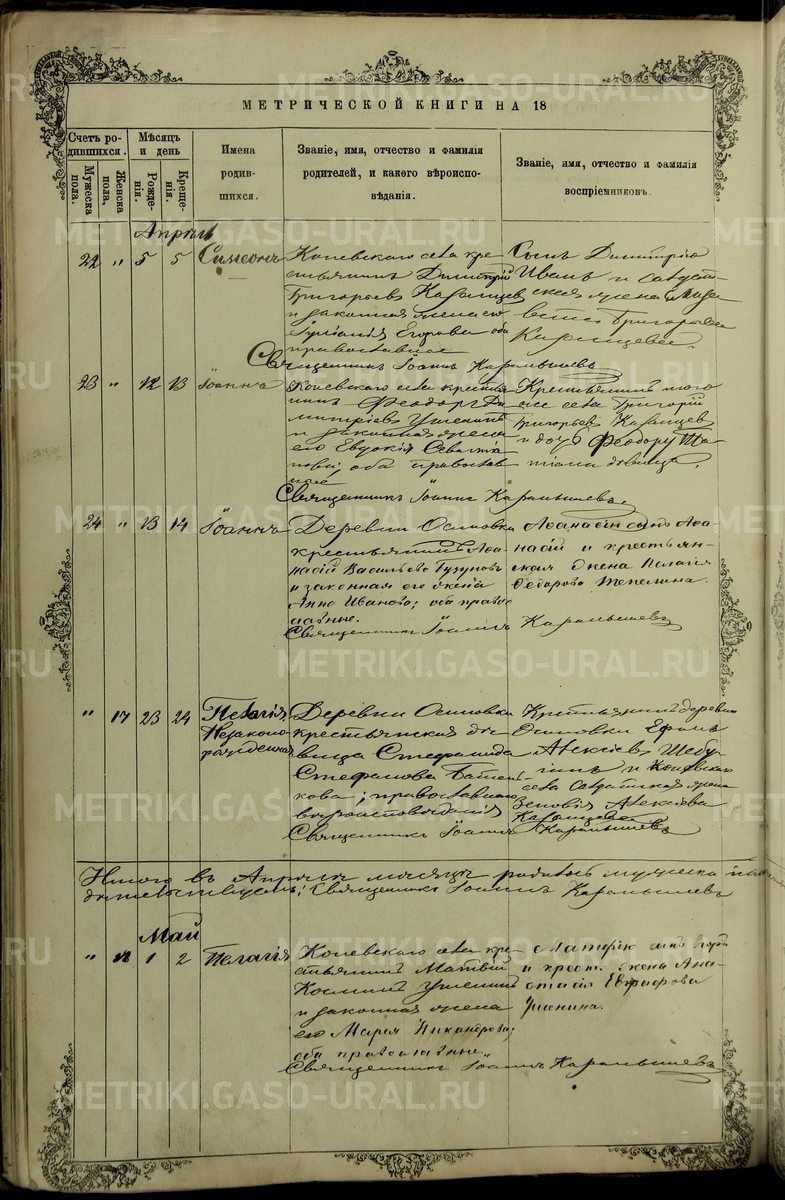 МЕТРИЧЕСКОЙ КНИГИ НА 18
Счетъ ро-
дившихся.
Мѣсяцъ
и день
Мужеска
пола.
Женска
пола,
Рожде-
нія.
Креще-
нія.
Имена
родив-
шихся.
Званіе, имя, отчество и фамилія
родителей, и какого вѣроиспо-
вѣданія.
Званіе, имя, отчество и фамилія
воспріемниковъ.
Апрѣль
22 " 5 5 Симеонъ
Коневскаго села кре
стьянинъ Димитрій
Григорьевъ Казанцев
и законная жена его
Іуліанія Егорова оба
православные
Сынъ Димитрія
Иванъ и
жена
Григорьева
Казанцева.
Священникъ Іоаннъ Карамышевъ
23 " 12 13 Іоаннъ
Коневскаго села крестья
нинъ Феодоръ Ди
митріевъ Ушенинъ
и законная жена
его Евдокія Севастья
нова; оба православ
ные
Крестьянинъ того
же села Григорій
Григорьевъ Казанцев
и дочь Феодору
девица.
Священникъ Іоаннъ Карамышевъ.
24 " 13 14 Іоаннъ
Деревни Осиновки
крестьянинъ Афа
насій Васильевъ
и законная его жена
Анна Иванова; оба право
славные.
Афанасій сынъ Афа
насій и крестьян-
ская жена Пелагія
Федорова Шепелина.
Священникъ Іоаннъ Карамышевъ
" 17 23 24 Пелагія
Незаконо
рожденная
Деревни Осиновки
крестьянская дѣ
вица Стефанида
Стефанова
кова; православнаго
вѣроисповѣданія
Крестьянинъ деревни
Осиновки Ефимъ
Алексѣевъ
и Коневскаго
села солдатская жена
Зеновія Алексѣева
Казанцева
Священникъ Іоаннъ Карамышевъ
Итого въ Апрѣлѣ мѣсяцѣ родилось мужеска
Священникъ Іоаннъ Карамышевъ
Май
" 18 1 2 Пелагія
Коневскаго села кре
стьянинъ Матвій
Козминъ Ушенинъ
и законная жена
его Марія Никандрова;
оба православные.
и крест. жена Ана
стасія Евграфова
Ушенина.
Священникъ Іоаннъ Карамышевъ
METRIKI.GASO-URAL.RU